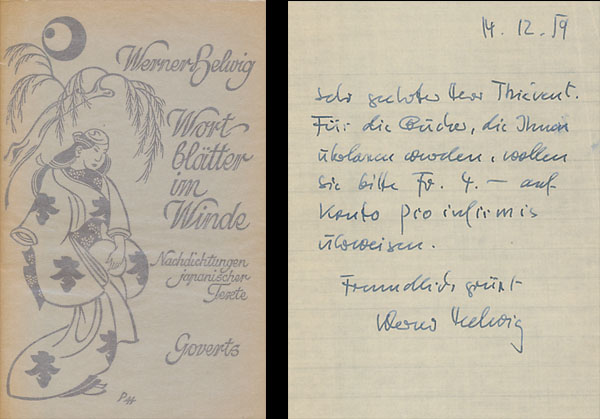 Werner Helwig
Wort
blätter
im
Winde
Nachdichtungen
japanischer
Texte
Goverts
PH
14. 12. 59
Sehr geehrter Herr Thiévent.
Für die Bücher, die Ihnen
überlassen wurden, wollen
Sie bitte Fr. 4.— auf
Konto pro infirmis
überweisen.
Freundlich grüßt
Werner Helwig